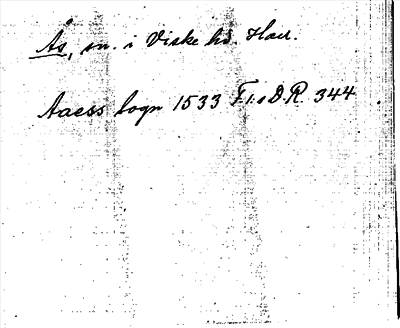 Ås, sn. i Viske hd. Hall.
Aaess sogn 1533 F1.s D.R. 344